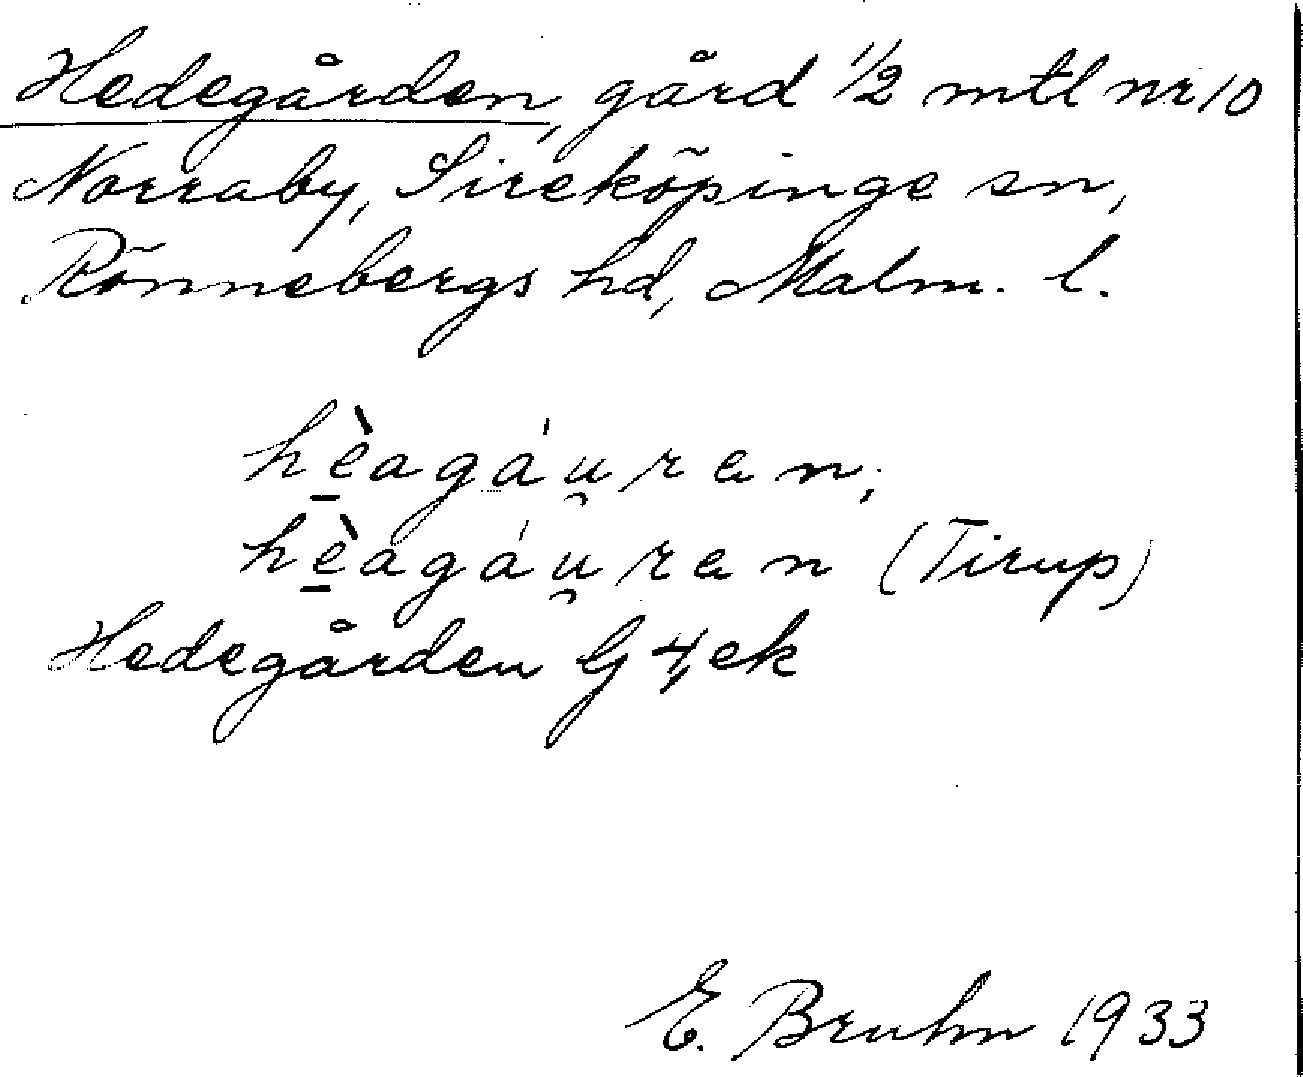 Hedegården, gård 1/2 mtl nr 10
Norraby, Sireköpinge sn,
Rönnebergs hd, Malm. l.
hèagáu̯ran;
hèagáu̯ran (Tirup)
Hedegården G 4, ek
E. Bruhn 1933